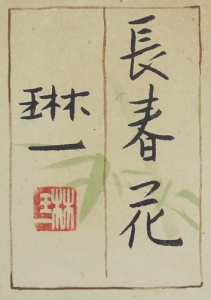 長春花
琳一